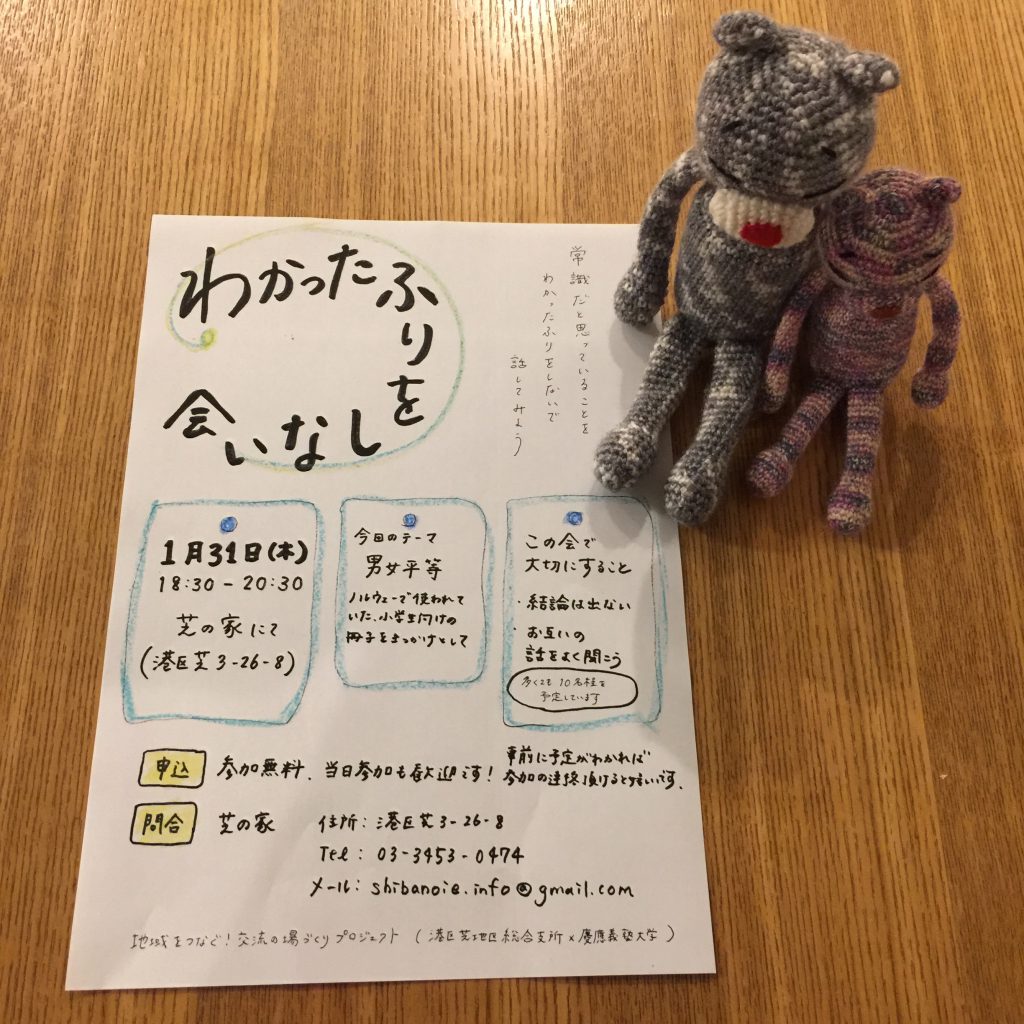 わかったふりを
しない会
常識だと思っていることを
わかったふりをしないで
話してみよう
1月31日(木)
18:30-20:30
芝の家にて
(港区芝3-26-8)
今回のテーマ
男女平等
ノルウェーで使われて
いた、小学生向けの
冊子をきっかけとして
この会で
大切にすること
・結論は出ない
・お互いの
話をよく聞こう
多くても10名程を
予定しています
申込 参加無料、当日参加も歓迎です!
事前に予定がわかれば
参加の連絡頂けると幸いです。
問合 芝の家 住所:港区芝3-26-8
Tel: 03-3453-0474
メール: shibanoie.info@gmail.com
地域をつなぐ!交流の場づくりプロジェクト (港区芝地区総合支所×慶應義塾大学)